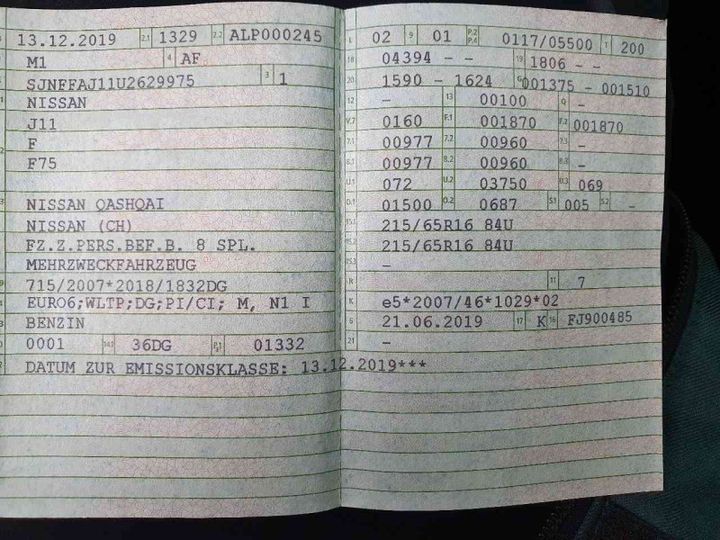 13.12.2019 2.1 1329 2.2 ALP000245
M1 4 AF
SJNFFAJ11U2629975 3 1
NISSAN
J11
F
F75
NISSAN QASHQAI
NISSAN (CH)
FZ.Z.PERS.BEF.B. 8 SPL.
MEHRZWECKFAHRZEUG
715/2007*2018/1832DG
EURO6;WLTP;DG;PI/CI; M, N1 I
BENZIN
0001 14.1 36DG P.1 01332
DATUM ZUR EMISSIONSKLASSE: 13.12.2019***
L 02 9 01 P.2 P.4 0117/05500 T 200
18 04394 - - 19 1806 - -
20 1590 - 1624 G 001375 - 001510
12 - 13 00100 Q -
V.7 0160 F.1 001870 F.2 001870
7.1 00977 7.2 00960 7.3 -
8.1 00977 8.2 00960 8.3 -
U.1 072 U.2 03750 U.3 069
O.1 01500 O.2 0687 S.1 005 S.2 -
15.1 215/65R16 84U
15.2 215/65R16 84U
15.3 -
R 11 7
K e5*2007/46*1029*02
6 21.06.2019 17 K 16 FJ900485
21 -